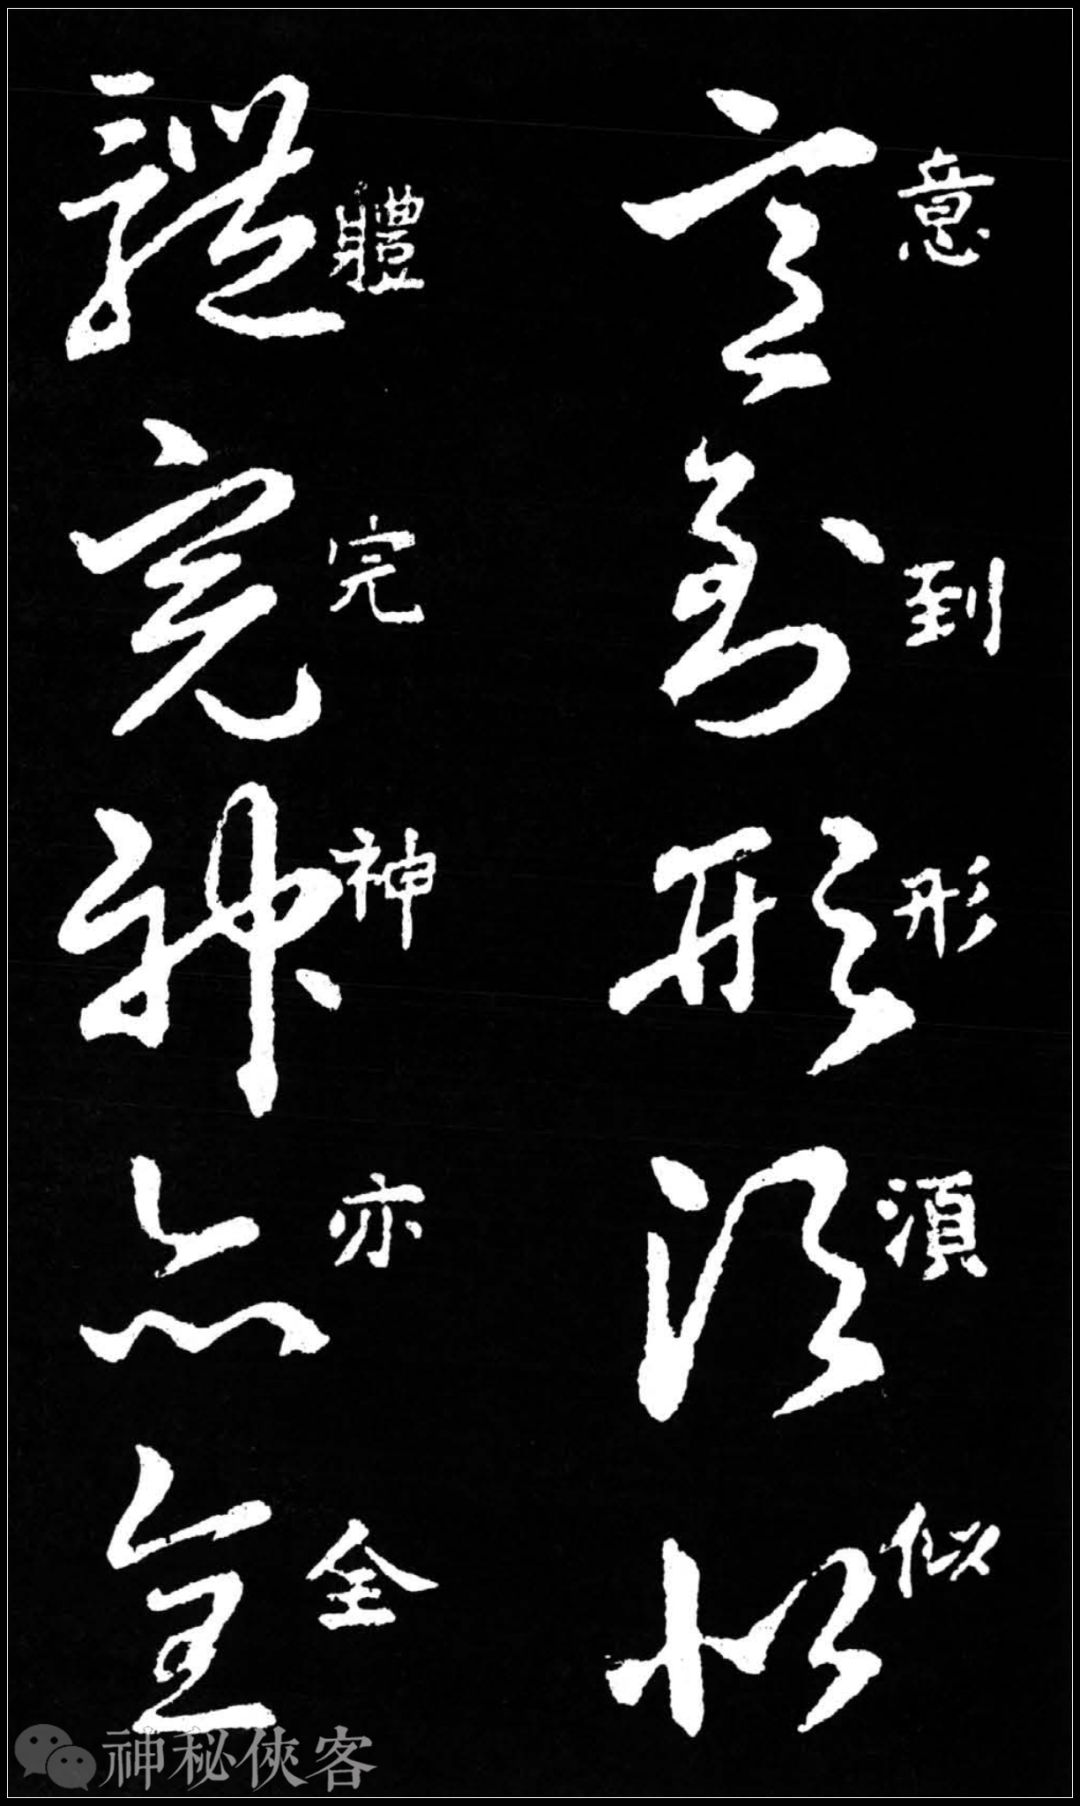 意到形須似
體完神亦全
神秘俠客